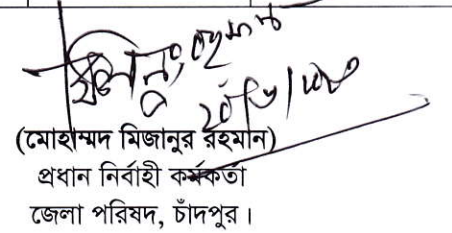 (মোহাম্মদ মিজানুর রহমান)
প্রধান নির্বাহী কর্মকর্তা
জেলা পরিষদ, চাঁদপুর।